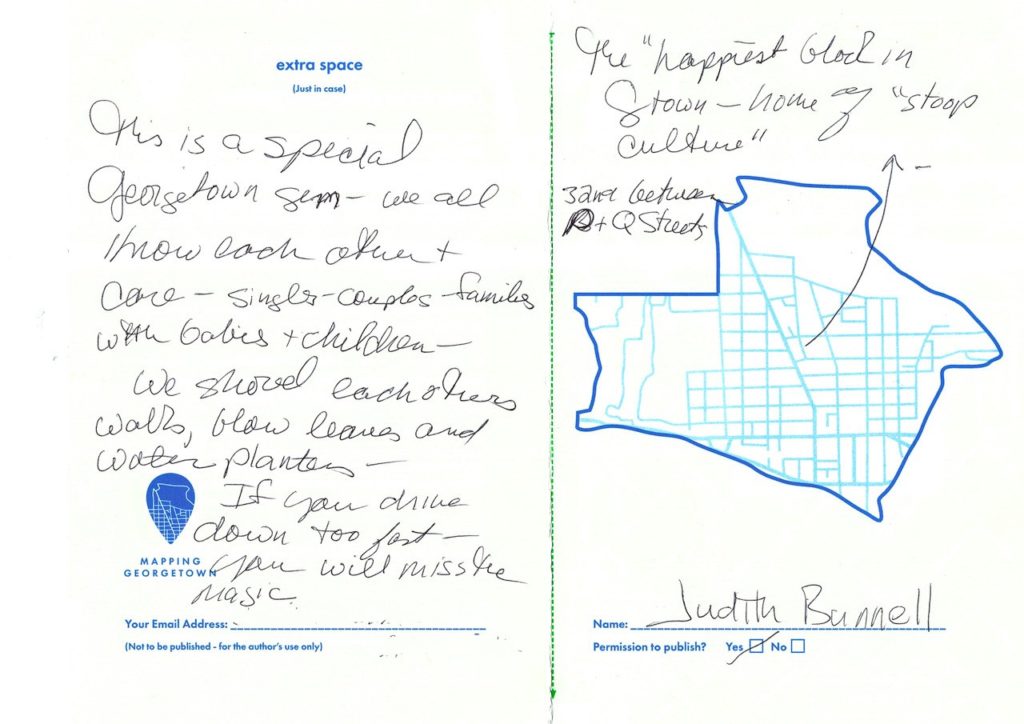 extra space
(Just in case)
This is a special
Georgetown gem – we all
know each other +
care – singles-couples-families
with babies + children –
We shovel each others
walks, blow leaves and
water planters –
If you drive
down too fast –
you will miss the
magic.
MAPPING
GEORGETOWN
Your Email Address:
(Not to be published - for the author's use only)
The "happiest block in
Gtown – home of "stoop
culture"
32nd between
P + Q Streets
Name: Judith Bunnell
Permission to publish? Yes No